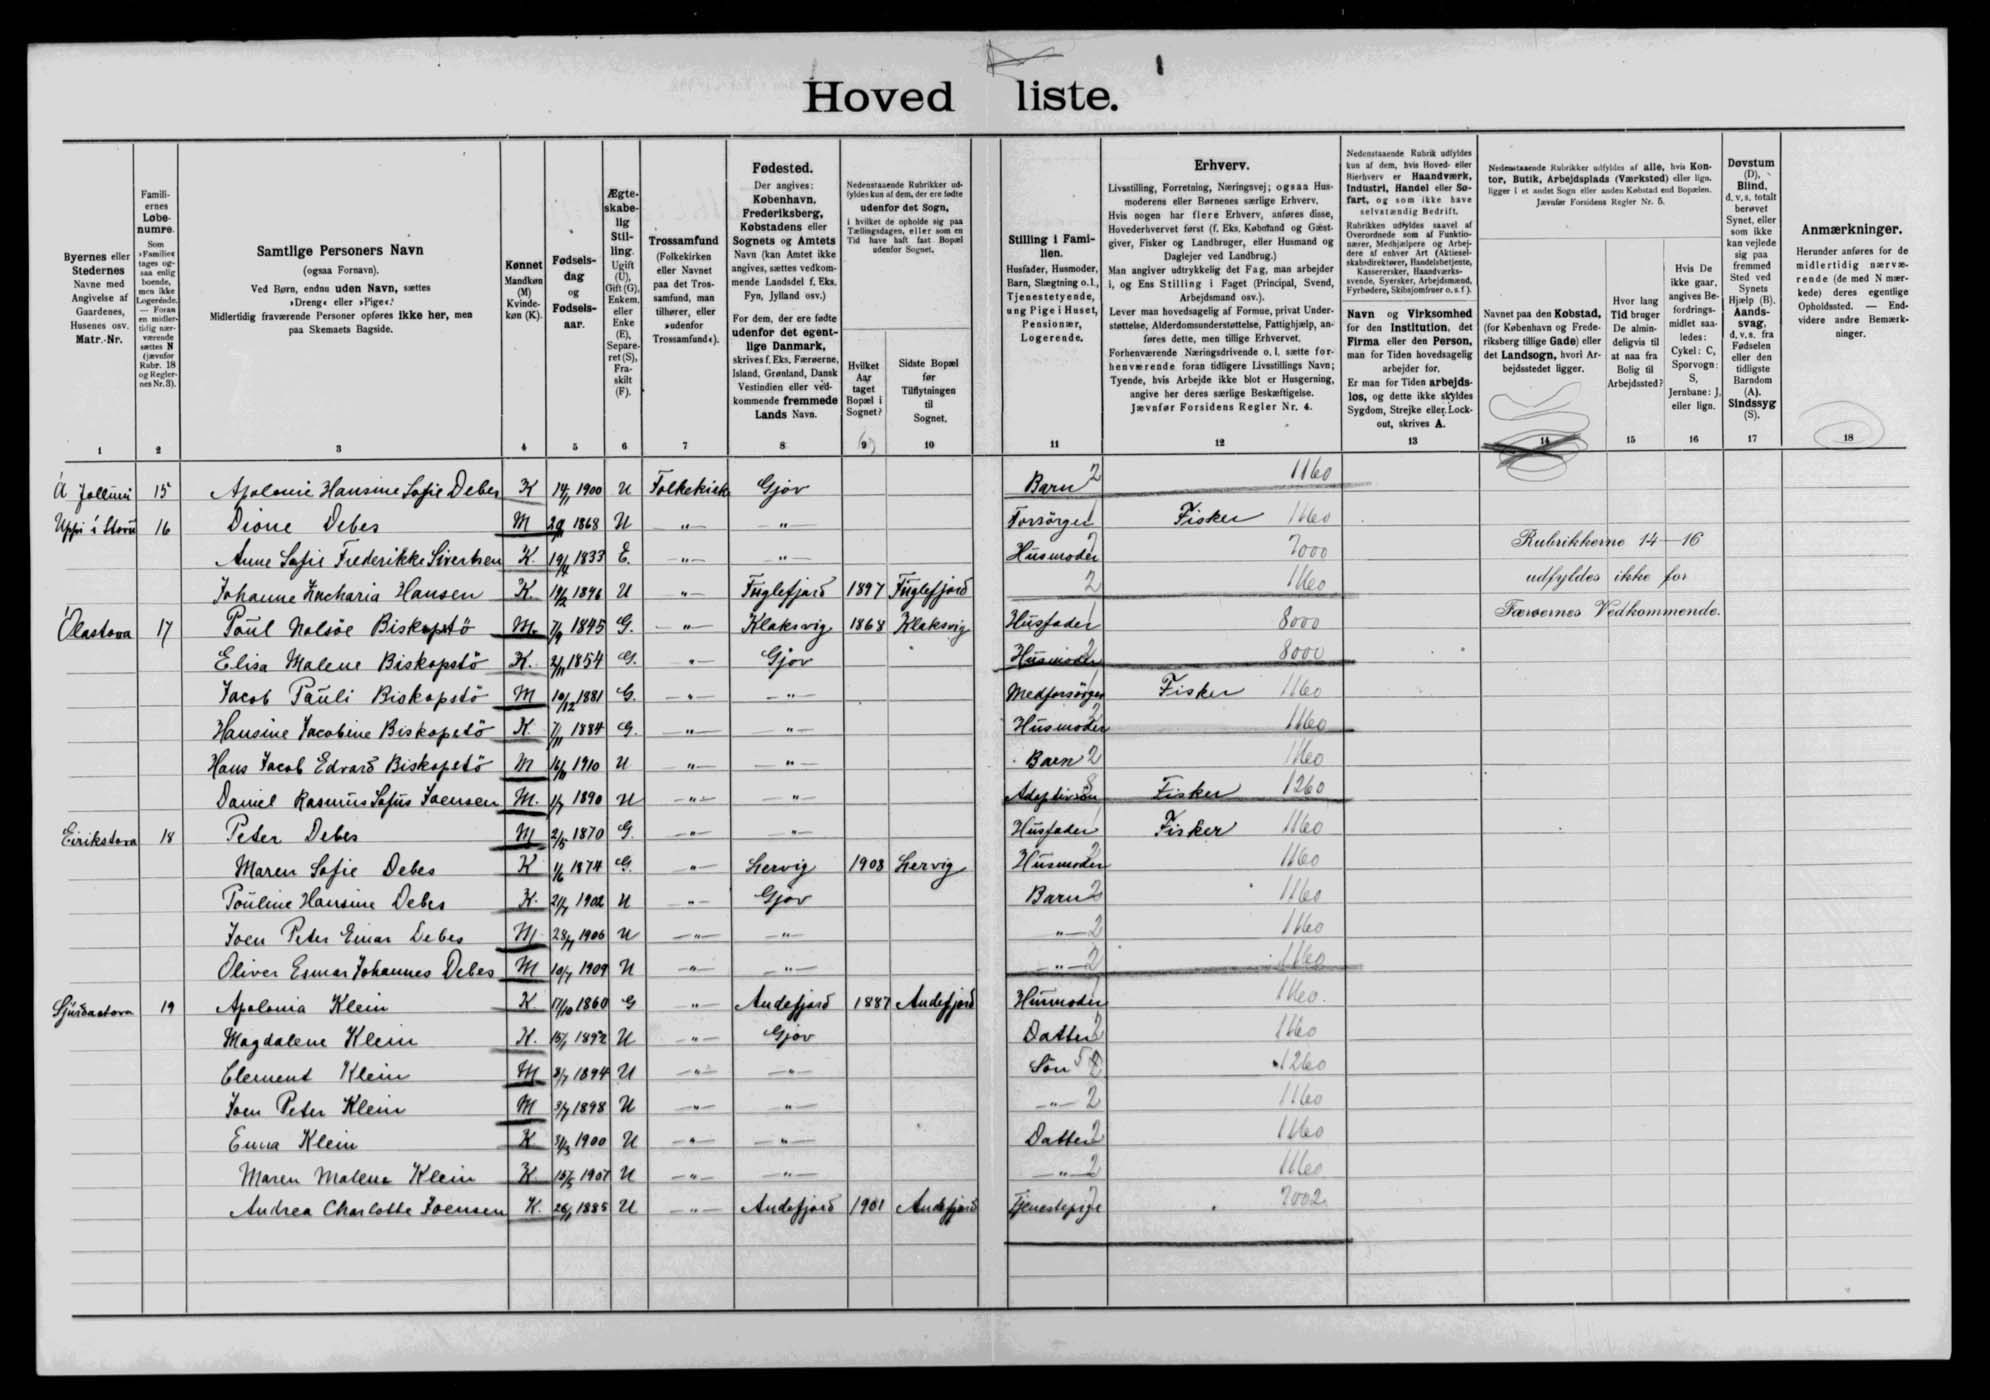 Hoved liste.
Byernes eller Stedernes Navne med Angivelse af Gaardenes, Husenes osv. Matr.-Nr.
Familiernes Løbenumre.
Som »Familie« tages ogsaa enlig boende, men ikke Logerende. — Foran en midlertidig nærværende sættes N (jævnfør Rubr. 18 og Regler­nes Nr. 3).
Samtlige Personers Navn
(ogsaa Fornavn).
Ved Børn, endnu uden Navn, sættes
»Dreng« eller »Pige«.
Midlertidig fraværende Personer opføres ikke her, men
paa Skemaets Bagside.
Kønnet
Mandkøn (M)
Kvindekøn (K).
Fødselsdag og Fødselsaar.
Ægteskabelig Stilling.
Ugift (U), Gift (G), Enkem. eller Enke (E), Separeret (S), Fraskilt (F).
Trossamfund
(Folkekirken eller Navnet paa det Trossamfund, man tilhører, eller »udenfor Trossamfund«).
Fødested.
Der angives:
København, Frederiksberg, Købstadens eller Sognets og Amtets Navn (kan Amtet ikke angives, sættes vedkommende Landsdel f. Eks. Fyn, Jylland osv.)
For dem, der ere fødte udenfor det egentlige Danmark, skrives f. Eks. Færøerne, Island, Grønland, Dansk Vestindien eller vedkommende fremmede Lands Navn.
Nedenstaaende Rubrikker udfyldes kun af dem, der ere fødte udenfor det Sogn, i hvilket de opholde sig paa Tællingsdagen, eller som en Tid have haft fast Bopæl udenfor Sognet.
Hvilket Aar taget Bopæl i Sognet?
Sidste Bopæl før Tilflytningen til Sognet.
Stilling i Familien.
Husfader, Husmoder, Barn, Slægtning o. l., Tjenestetyende, ung Pige i Huset, Pensionær, Logerende.
Erhverv.
Livsstilling, Forretning, Næringsvej; ogsaa Husmoderens eller Børnenes særlige Erhverv.
Hvis nogen har flere Erhverv, anføres disse, Hovederhvervet først (f. Eks. Købmand og Gæstgiver, Fisker og Landbruger, eller Husmand og Daglejer ved Landbrug.)
Man angiver udtrykkelig det Fag, man arbejder i, og Ens Stilling i Faget (Principal, Svend, Arbejdsmand osv.).
Lever man hovedsagelig af Formue, privat Understøttelse, Alderdomsunderstøttelse, Fattighjælp, anføres dette, men tillige Erhvervet.
Forhenværende Næringsdrivende o. l. sætte forhenværende foran tidligere Livsstillings Navn; Tyende, hvis Arbejde ikke blot er Husgerning, angive her deres særlige Beskæftigelse.
Jævnfør Forsidens Regler Nr. 4.
Nedenstaaende Rubrik udfyldes kun af dem, hvis Hoved- eller Bierhverv er Haandværk, Industri, Handel eller Søfart, og som ikke have selvstændig Bedrift.
Rubrikken udfyldes saavel af Overordnede som af Funktionærer, Medhjælpere og Arbejdere af enhver Art (Aktieselskabsdirektører, Handelsbetjente, Kassererske, Haandværkssvende, Syersker, Arbejdsmænd, Fyrbødere, Skibsjomfruer o. s. f.).
Navn og Virksomhed for den Institution, det Firma eller den Person, man for Tiden hovedsagelig arbejder for.
Er man for Tiden arbejdsløs, og dette ikke skyldes Sygdom, Strejke eller Lockout, skrives A.
Nedenstaaende Rubrikker udfyldes af alle, hvis Kontor, Butik, Arbejdsplads (Værksted) eller lign. ligger i et andet Sogn eller anden Købstad end Bopælen.
Jævnfør Forsidens Regler Nr. 5.
Navnet paa den Købstad, (for København og Frederiksberg tillige Gade) eller det Landsogn, hvori Arbejdsstedet ligger.
Hvor lang Tid bruger De almindeligvis til at naa fra Bolig til Arbejdssted?
Hvis De ikke gaar, angives Befordringsmidlet saaledes: Cykel: C, Sporvogn: S, Jernbane: J, eller lign.
Døvstum (D), Blind, d. v. s. totalt berøvet Synet, eller som ikke kan vejlede sig paa fremmed Sted ved Synets Hjælp (B). Aandssvag, d. v. s. fra Fødselen eller den tidligste Barndom (A). Sindssyg (S).
Anmærkninger.
Herunder anføres for de midlertidig nærværende (de med N mærkede) deres egentlige Opholdssted. — Endvidere andre Bemærkninger.
1 2 3 4 5 6 7 8 9 10 11 12 13 14 15 16 17 18
15 Apolonie Hansine Sofie Debes K 1900 U Folkekirk Gjov Barn 2 1160
16 Dione Debes M 1868 U —"— —"— Forsörger 1 Fisker 1160
Anne Sofie Frederikke Sivertsen K. 19/4 1833 E. —"— —"— Husmoder 2 2000
Johanne Zacharia Hansen K. 1896 U —"— Fuglefjord 1897 Fuglefjord 2 1160
Rubrikkerne 14—16
udfyldes ikke for
Færøernes Vedkommende.
Ólastova 17 Poul Nolsöe Biskopstö M. 1845 G. —"— Klaksvig 1868 Klaksvig Husfader 1 8000
Elisa Malene Biskopstö K. 1854 G. —"— Gjov Husmoder 2 8000
Jacob Pauli Biskopstö M 10/12 1881 G. —"— —"— Medforsörger 1 Fisker 1160
Hansine Jacobine Biskopstö K. 7/11 1884 G. —"— —"— Husmoder 2 1160
Hans Jacob Edvard Biskopstö M 1910 U —"— —"— Barn 2 1160
Daniel Rasmus Sofus Joensen M. 1890 U —"— —"— Adoptivsön Fisker 1260
Eirikstova 18 Peter Debes M 2/5 1870 G. —"— —"— Husfader 1 Fisker 1160
Maren Sofie Debes K 1/6 1874 G. —"— Lervig 1908 Lervig Husmoder 2 1160
Pouline Hansine Debes K. 1902 U —"— Gjov Barn 2 1160
Joen Peter Einar Debes M 1906 U —"— —"— —"— 2 1160
Oliver Esmar Johannes Debes M 1909 U —"— —"— —"— 2 1160
Sjúrdastova 19 Apolonia Klein K 17/10 1860 G —"— Andefjord 1887 Andefjord Husmoder 1 1160.
Magdalene Klein K. 1892 U —"— Gjov Datter 2 1160
Clement Klein M 1894 U —"— —"— Sön 1260
Joen Peter Klein M 1898 U —"— —"— —"— 2 1160
Enna Klein K 1900 U —"— —"— Datter 2 1160
Maren Malena Klein K. 1907 U —"— —"— —"— 2 1160
Andrea Charlotte Joensen K. 1885 U —"— Andefjord 1901 Andefjord Tjenestepige 2 2002